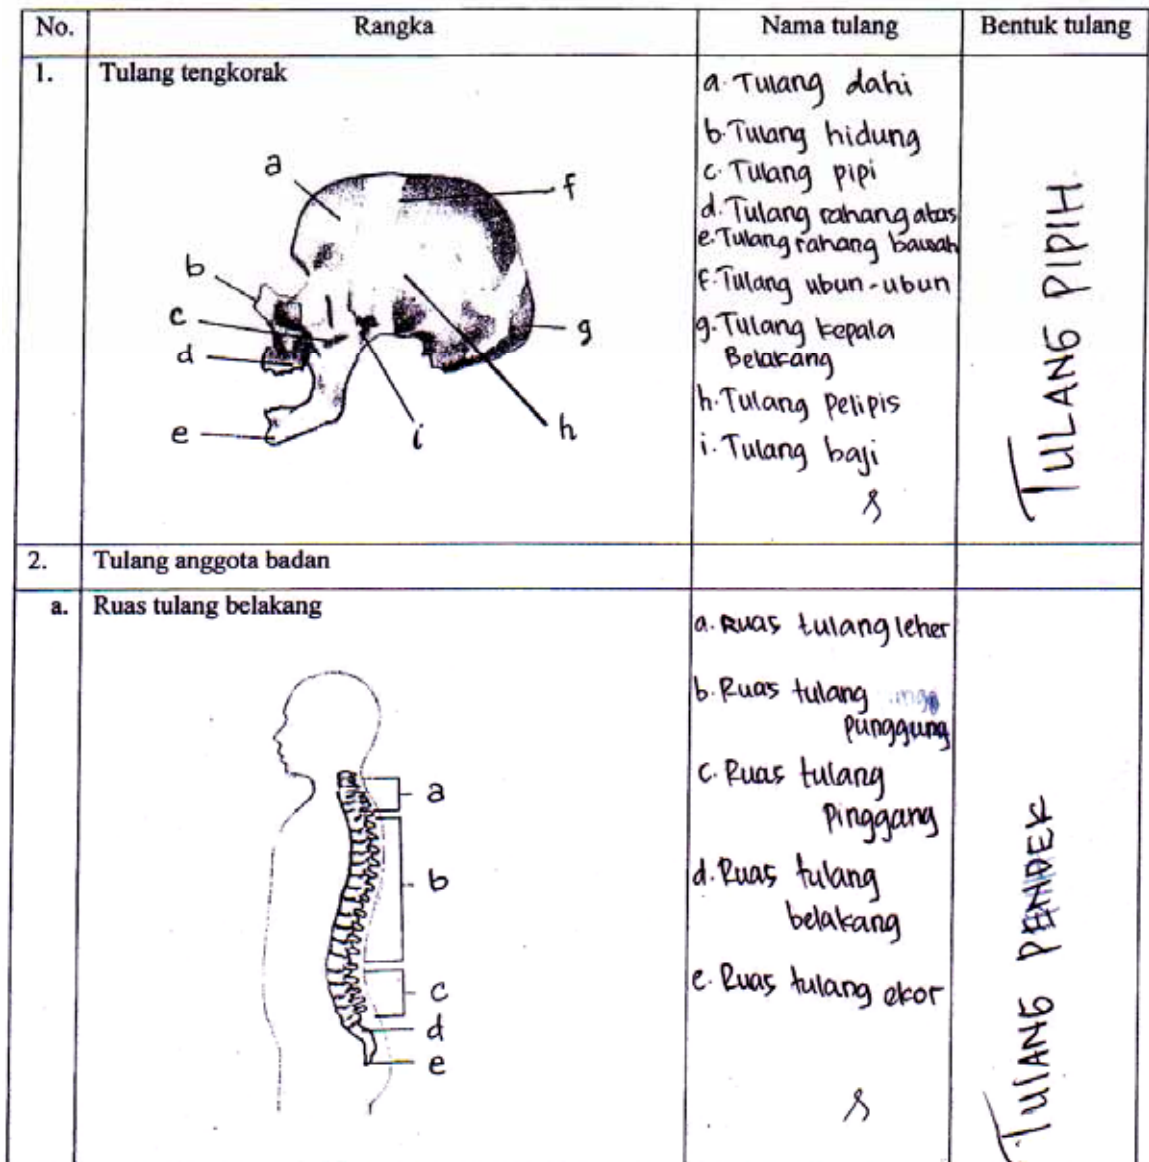 No. Rangka Nama tulang Bentuk tulang
1. Tulang tengkorak
a
b
c
d
e
f
g
h
i
a. Tulang dahi
b. Tulang hidung
c. Tulang pipi
d. Tulang rahang atas
e. Tulang rahang bawah
f. Tulang ubun-ubun
g. Tulang kepala
Belakang
h. Tulang Pelipis
i. Tulang baji
TULANG PIPIH
2. Tulang anggota badan
a. Ruas tulang belakang
a
b
c
d
e
a. Ruas tulang leher
b. Ruas tulang
punggung
c. Ruas tulang
Pinggang
d. Ruas tulang
belakang
e. Ruas tulang ekor
TULANG PENDEK